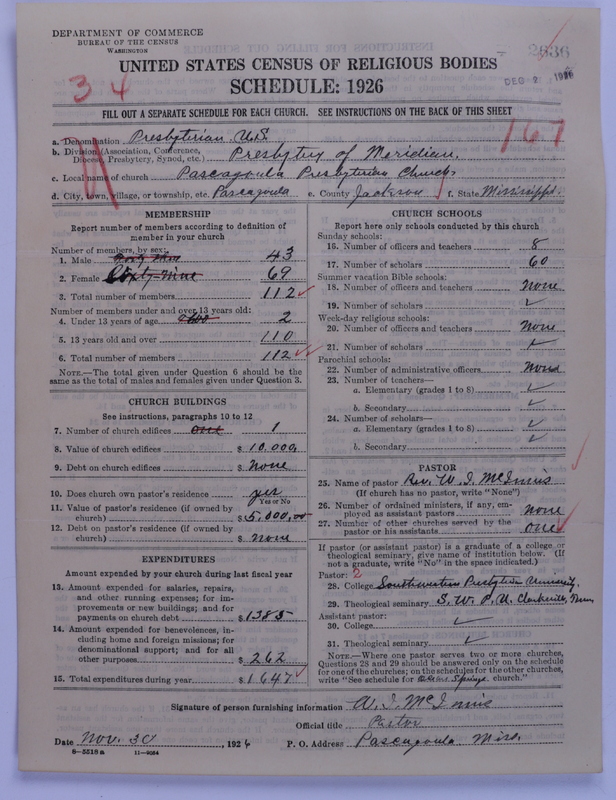 DEPARTMENT OF COMMERCE
BUREAU OF THE CENSUS
WASHINGTON
2636
UNITED STATES CENSUS OF RELIGIOUS BODIES
DEC 2 1926
SCHEDULE: 1926
34
FILL OUT A SEPARATE SCHEDULE FOR EACH CHURCH. SEE INSTRUCTIONS ON THE BACK OF THIS SHEET
167
a. Denomination Presbyterian U.S.
b. Division (Association, Conference, Diocese, Presbytery, Synod, etc.) Presbytery of Meridian.
c. Local name of church Pascagoula Presbyterian Church
d. City, town, village, or township, etc. Pascagoula e. County Jackson f. State Mississippi.
MEMBERSHIP
Report number of members according to definition of
member in your church
Number of members, by sex:
1. Male 43
2. Female Sixty-Nine 69
3. Total number of members 112
Number of members under and over 13 years old:
4. Under 13 years of age two 2
5. 13 years old and over 110
6. Total number of members 112
NOTE.—The total given under Question 6 should be
same as the total of males and females given under Question 3.
CHURCH BUILDINGS
See instructions, paragraphs 10 to 12
7. Number of church edifices one 1
8. Value of church edifices $ 10,000
9. Debt on church edifices $ none
10. Does church own pastor's residence yes
Yes or No
11. Value of pastor's residence (if owned by
church) $ 5,000,00
12. Debt on pastor's residence (if owned by
church) $ none
EXPENDITURES
Amount expended by your church during last fiscal year
13. Amount expended for salaries, repairs,
and other running expenses; for im-
provements or new buildings; and for
payments on church debt $ 1385
14. Amount expended for benevolences, in-
cluding home and foreign missions; for
denominational support; and for all
other purposes $ 262
15. Total expenditures during year $ 1647
CHURCH SCHOOLS
Report here only schools conducted by this church
Sunday schools:
16. Number of officers and teachers 8
17. Number of scholars 60
Summer vacation Bible schools:
18. Number of officers and teachers none
19. Number of scholars
Week-day religious schools:
20. Number of officers and teachers none
21. Number of scholars
Parochial schools:
22. Number of administrative officers none
23. Number of teachers—
a. Elementary (grades 1 to 8)
b. Secondary
24. Number of scholars—
a. Elementary (grades 1 to 8)
b. Secondary
PASTOR
25. Name of pastor Rev. W. I. McInnis
(If church has no pastor, write "None")
26. Number of ordained ministers, if any, em-
ployed as assistant pastors none
27. Number of other churches served by the
pastor or his assistants one
If pastor (or assistant pastor) is a graduate of a college or
theological seminary, give name of institution below. (If
not a graduate, write "No" in the space indicated.)
Pastor: 2
28. College Southwestern Presbyterian University,
29. Theological seminary S. W. P. U. Clarksville, Tenn.
Assistant pastor:
30. College
31. Theological seminary
NOTE.—Where one pastor serves two or more churches,
Questions 28 and 29 should be answered only on the schedule
for one of the churches; on the schedules for the other churches,
write "See schedule for Ocean Springs church."
Signature of person furnishing information W. I. McInnis
Official title Pastor
Date Nov. 30, 1926 P. O. Address Pascagoula Miss.
8—5518 a 11—9064